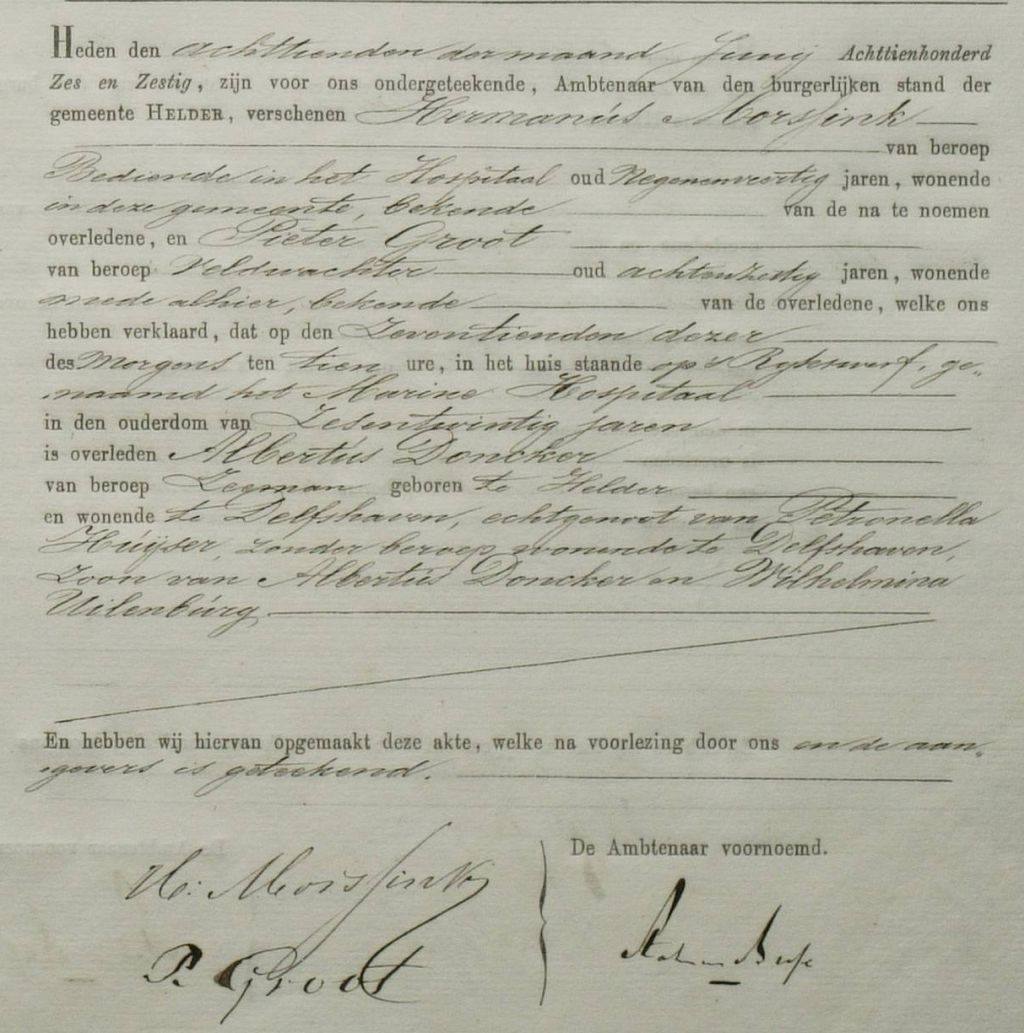 Heden den achttienden der maand Junij Achttienhonderd
Zes en Zestig, zijn voor ons ondergeteekende, Ambtenaar van den burgerlijken stand der
gemeente HELDER, verschenen Hermanús Morssink
van beroep
Bediende in het Hospitaal oud Negenenveertig jaren, wonende
in deze gemeente, bekende van de na te noemen
overledene, en Pieter Groot
van beroep Veldwachter oud achtenzestig jaren, wonende
mede alhier, bekende van de overledene, welke ons
hebben verklaard, dat op den Zeventienden dezer
des Morgens ten tien ure, in het huis staande op 's Rijkswerf, ge„
naamd het Marine Hospitaal
in den ouderdom van Zesentwintig jaren
is overleden Albertús Doncker
van beroep Zeeman geboren te Helder
en wonende te Delfshaven, echtgenoot van Petronella
Húijser, zonder beroep, wonende te Delfshaven,
Zoon van Albertús Doncker en Wilhelmina
Uilenbúrg.
En hebben wij hiervan opgemaakt deze akte, welke na voorlezing door ons en de aan„
gevers is geteekend.
De Ambtenaar voornoemd.
H: Morssink
P. Groot